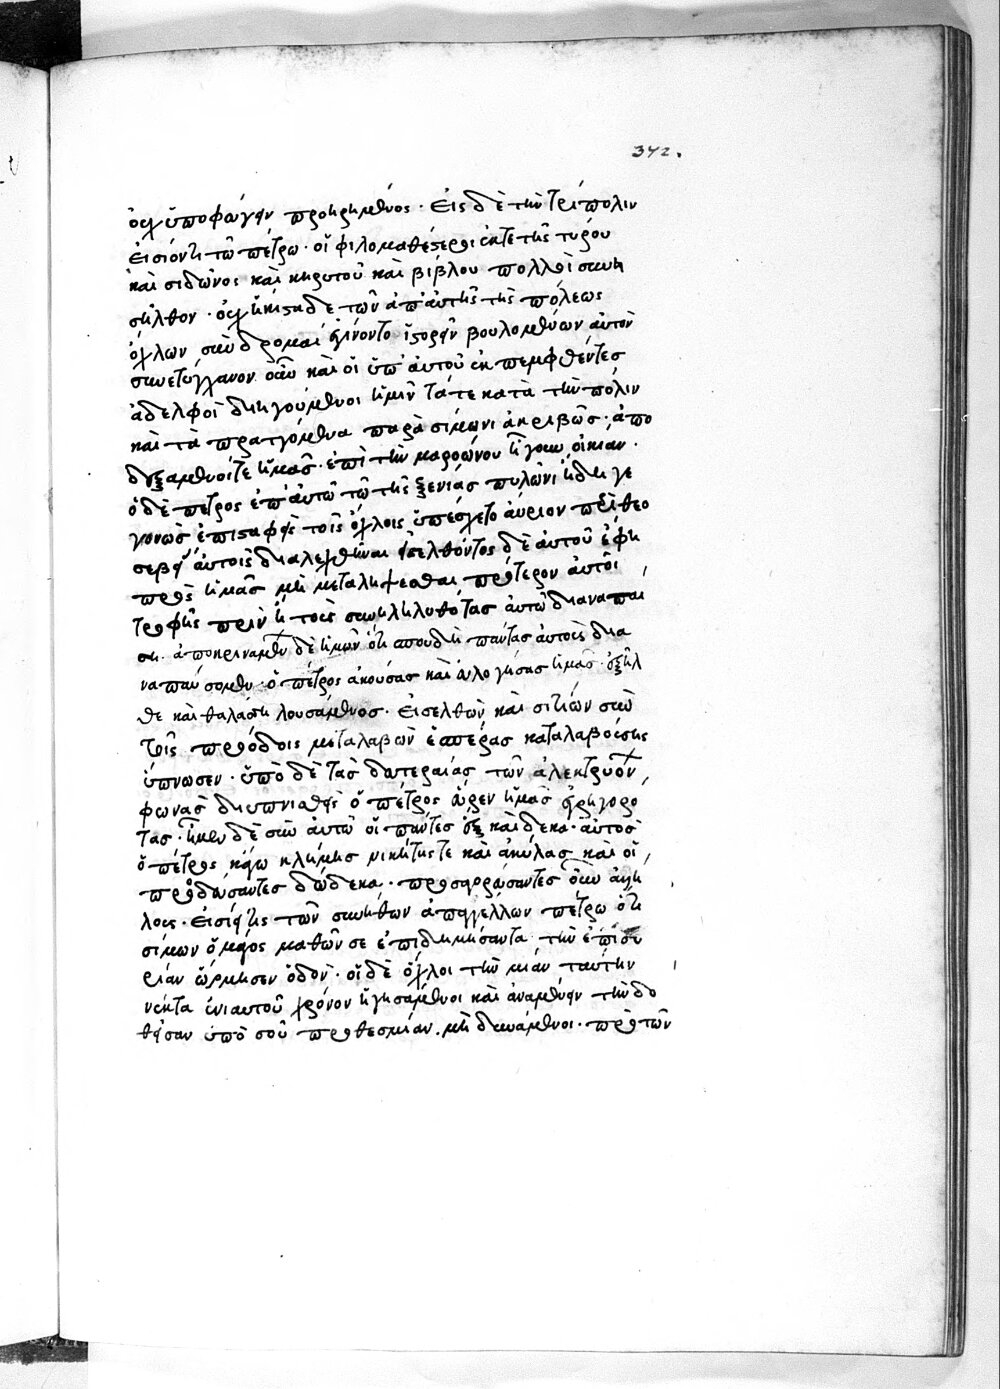 342.
ὄχλῳ ὑποφωνεῖν προῃρημένος · Εἰς δὲ τὴν τρίπολιν
εἰσιόντι τῶ πέτρω · οἱ φιλομαθέστεροι ἔκ τε τῆς τύρου
καὶ σιδῶνος καὶ βηρυτοῦ καὶ βίβλου πολλοὶ συνῆ
σῆλθον · οὐχ ἥκιστα δὲ τῶν ἀπ' αὐτῆς τῆς πόλεως
ὄχλων συνδρομαὶ ἐγίνοντο ἱστορεῖν βουλομένων αὐτόν
συνετύγχανον οὖν καὶ οἱ ὑπ' αὐτοῦ ἐκπεμφθέντες
ἀδελφοὶ διηγούμενοι ἡμῖν τά τε κατὰ τὴν πόλιν
καὶ τὰ πραττόμενα παρὰ σίμωνι ἀκριβῶς · ἀπο
δεξάμενοί τε ἡμᾶς · ἐπὶ τὴν μαροώνου ἦγον οἰκίαν ·
ὁ δὲ πέτρος ἐπ' αὐτῶ τῶ τῆς ξενίας πυλῶνι ἤδη γε
γονὼς ἐπιστραφεὶς τοῖς ὄχλοις ὑπέσχετο αὔριον περὶ θεο
σεβείας αὐτοῖς διαλεχθῆναι εἰσελθόντος δὲ αὐτοῦ ἔφη
πρὸς ἡμᾶς μὴ μεταλήψεσθαι πρότερον αὐτὸς
τροφῆς πρὶν ἢ τοὺς συνεληλυθότας αὐτῶ διαναπαῦ
σαι · ἀποκριναμένων δὲ ἡμῶν ὅτι σπουδῆ πάντας αὐτοὺς δια
ναπαύσομεν · ὁ πέτρος ἀκούσας καὶ εὐλογήσας ἡμᾶς · ἐξῆλ
θε καὶ θαλάσση λουσάμενος · Εἰσελθὼν καὶ σιτίων σὺν
τοῖς προόδοις μεταλαβὼν ἑσπέρας καταλαβούσης
ὕπνωσεν · ὑπὸ δὲ τὰς δευτεραίας τῶν ἀλεκτρυόνων
φωνὰς διυπνισθεὶς ὁ πέτρος εὗρεν ἡμᾶς ἐγρηγορό
τας · ἦμεν δὲ σὺν αὐτῶ οἱ πάντες ἓξ καὶ δέκα · αὐτὸς
ὁ πέτρος κἀγὼ κλήμης νικήτης τε καὶ ἀκύλας καὶ οἱ
προοδεύσαντες δώδεκα · προσαγορεύσαντες οὖν ἀλλή
λους · Εἰσίει τις τῶν συνήθων ἀπαγγέλλων πέτρω ὅτι
σίμων ὁ μάγος μαθών σε ἐπιδημήσαντα τὴν ἐπὶ συ
ρίαν ὥρμησεν ὁδόν · οἱ δὲ ὄχλοι τὴν μίαν ταύτην
νύκτα ἐνιαυτοῦ χρόνον ἡγησάμενοι καὶ ἀναμένειν τὴν δο
θεῖσαν ὑπὸ σοῦ προθεσμίαν · μὴ δυνάμενοι · πρὸ τῶν